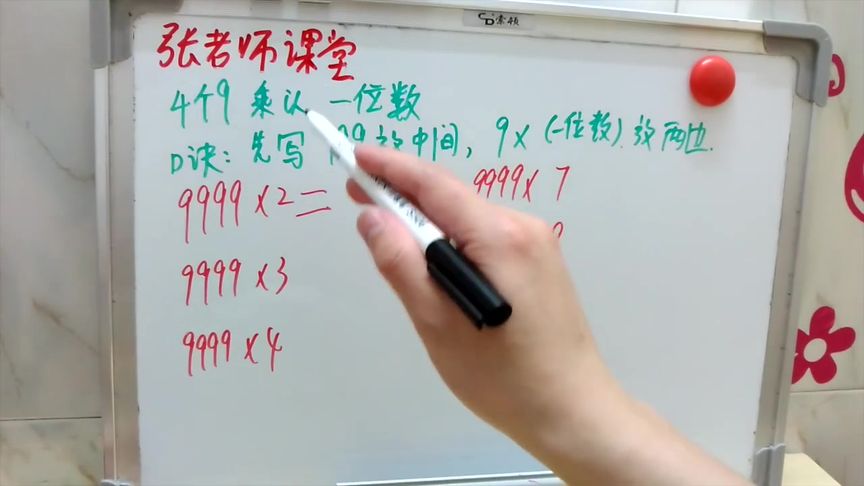 张老师课堂
4个9 乘以 一位数
口诀: 先写 99放中间, 9×(一位数)放两边.
9999×2=
9999×3
9999×4
9999×7
索顿